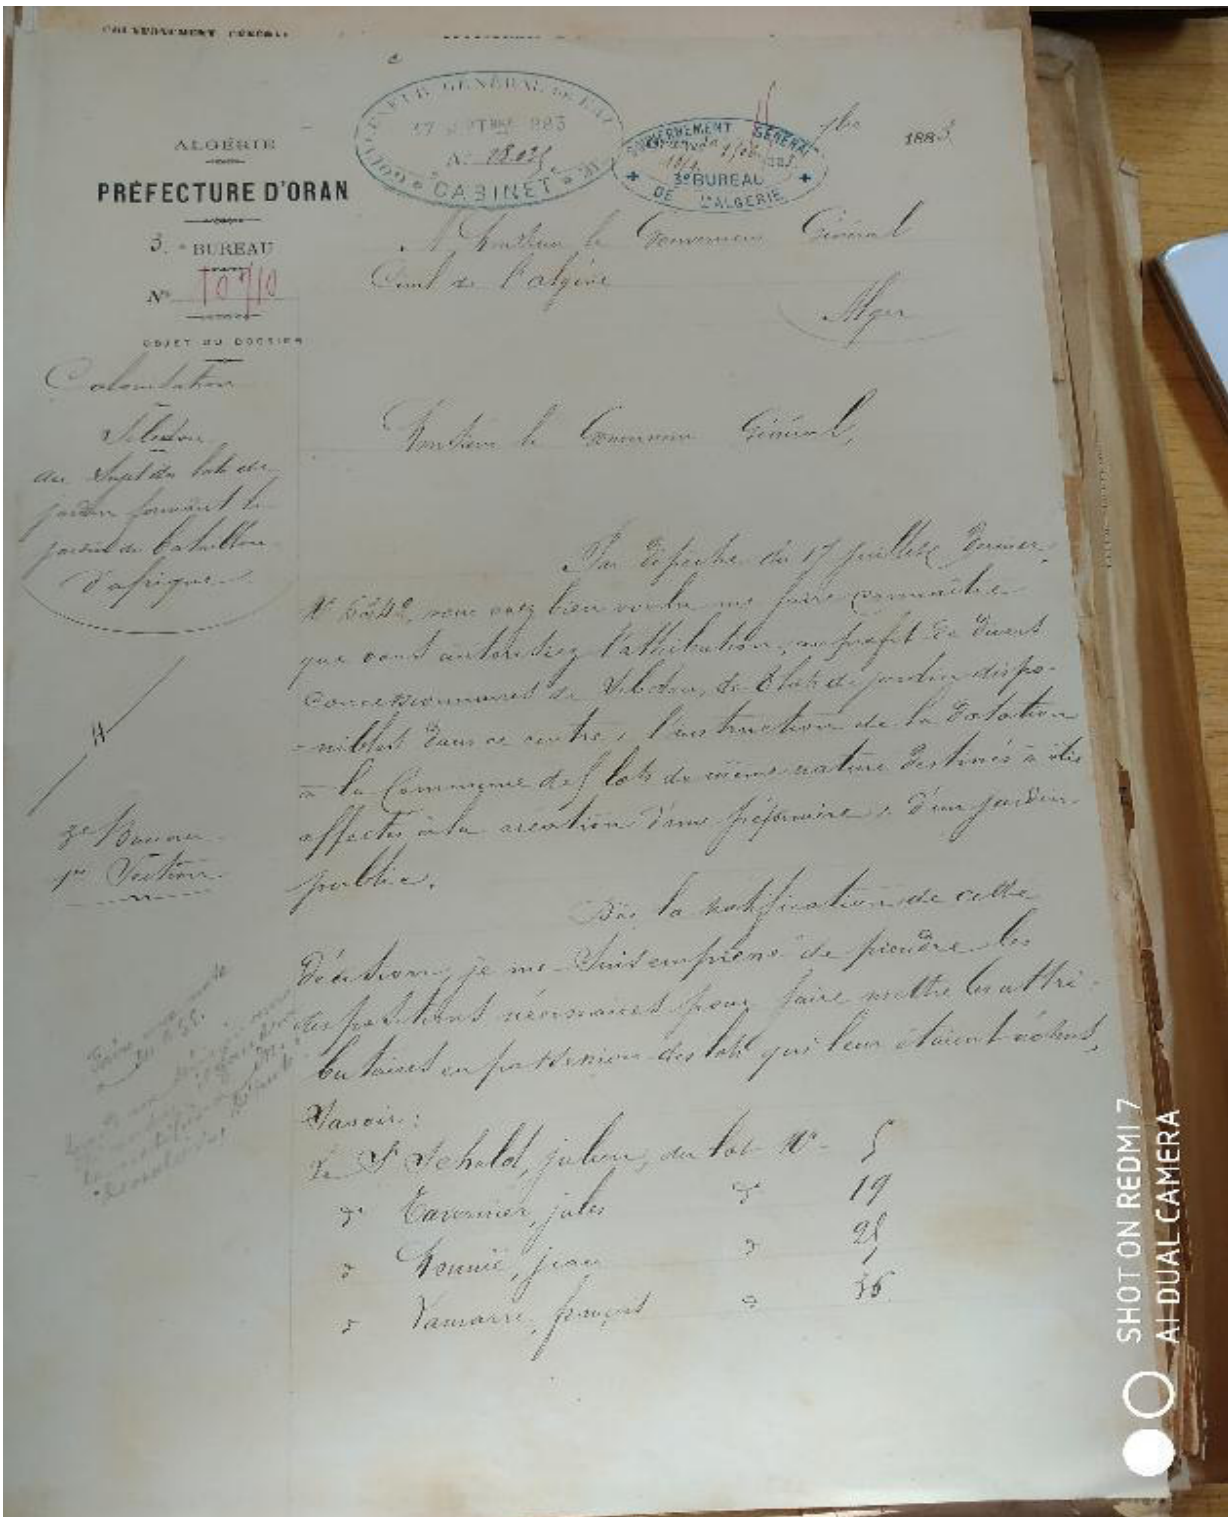 GOUVERNEMENT GÉNÉRAL
ALGÉRIE
PRÉFECTURE D'ORAN
3.e BUREAU
No 10710
OBJET DU DOSSIER
Colonisation
Sebdou
au sujet des lots de
jardin formant le
jardin du bataillon
d'afrique
GOUVERNEUR GÉNÉRAL DE L'ALGÉRIE
17 SEPTBRE 1883
No
CABINET
GOUVERNEMENT GÉNÉRAL
3e BUREAU
DE L'ALGÉRIE
7bre 1883
A Monsieur le Gouverneur Général
Civil de l'algérie
Alger
Monsieur le Gouverneur Général,
Par dépêche du 17 juillet dernier,
No vous avez bien voulu me faire connaître
que vous autorisiez l'attribution, au profit de divers
concessionnaires de Sebdou, de lots de jardin dispo-
=nibles dans ce centre, l'instruction de la dotation
à la Commune des lots de même nature destinés à être
affectés à la création d'une pépinière & d'un jardin
public.
Dès la notification de cette
décision, je me suis empressé de prendre les
dispositions nécessaires pour faire mettre les attri-
butaires en possession des lots qui leur étaient échus,
Savoir:
Le Sr Schold, julien, du lot No 5
do Tavernier, jules do 19
jean
françois 36
3e Bureau
1re Section
SHOT ON REDMI 7
AI DUAL CAMERA